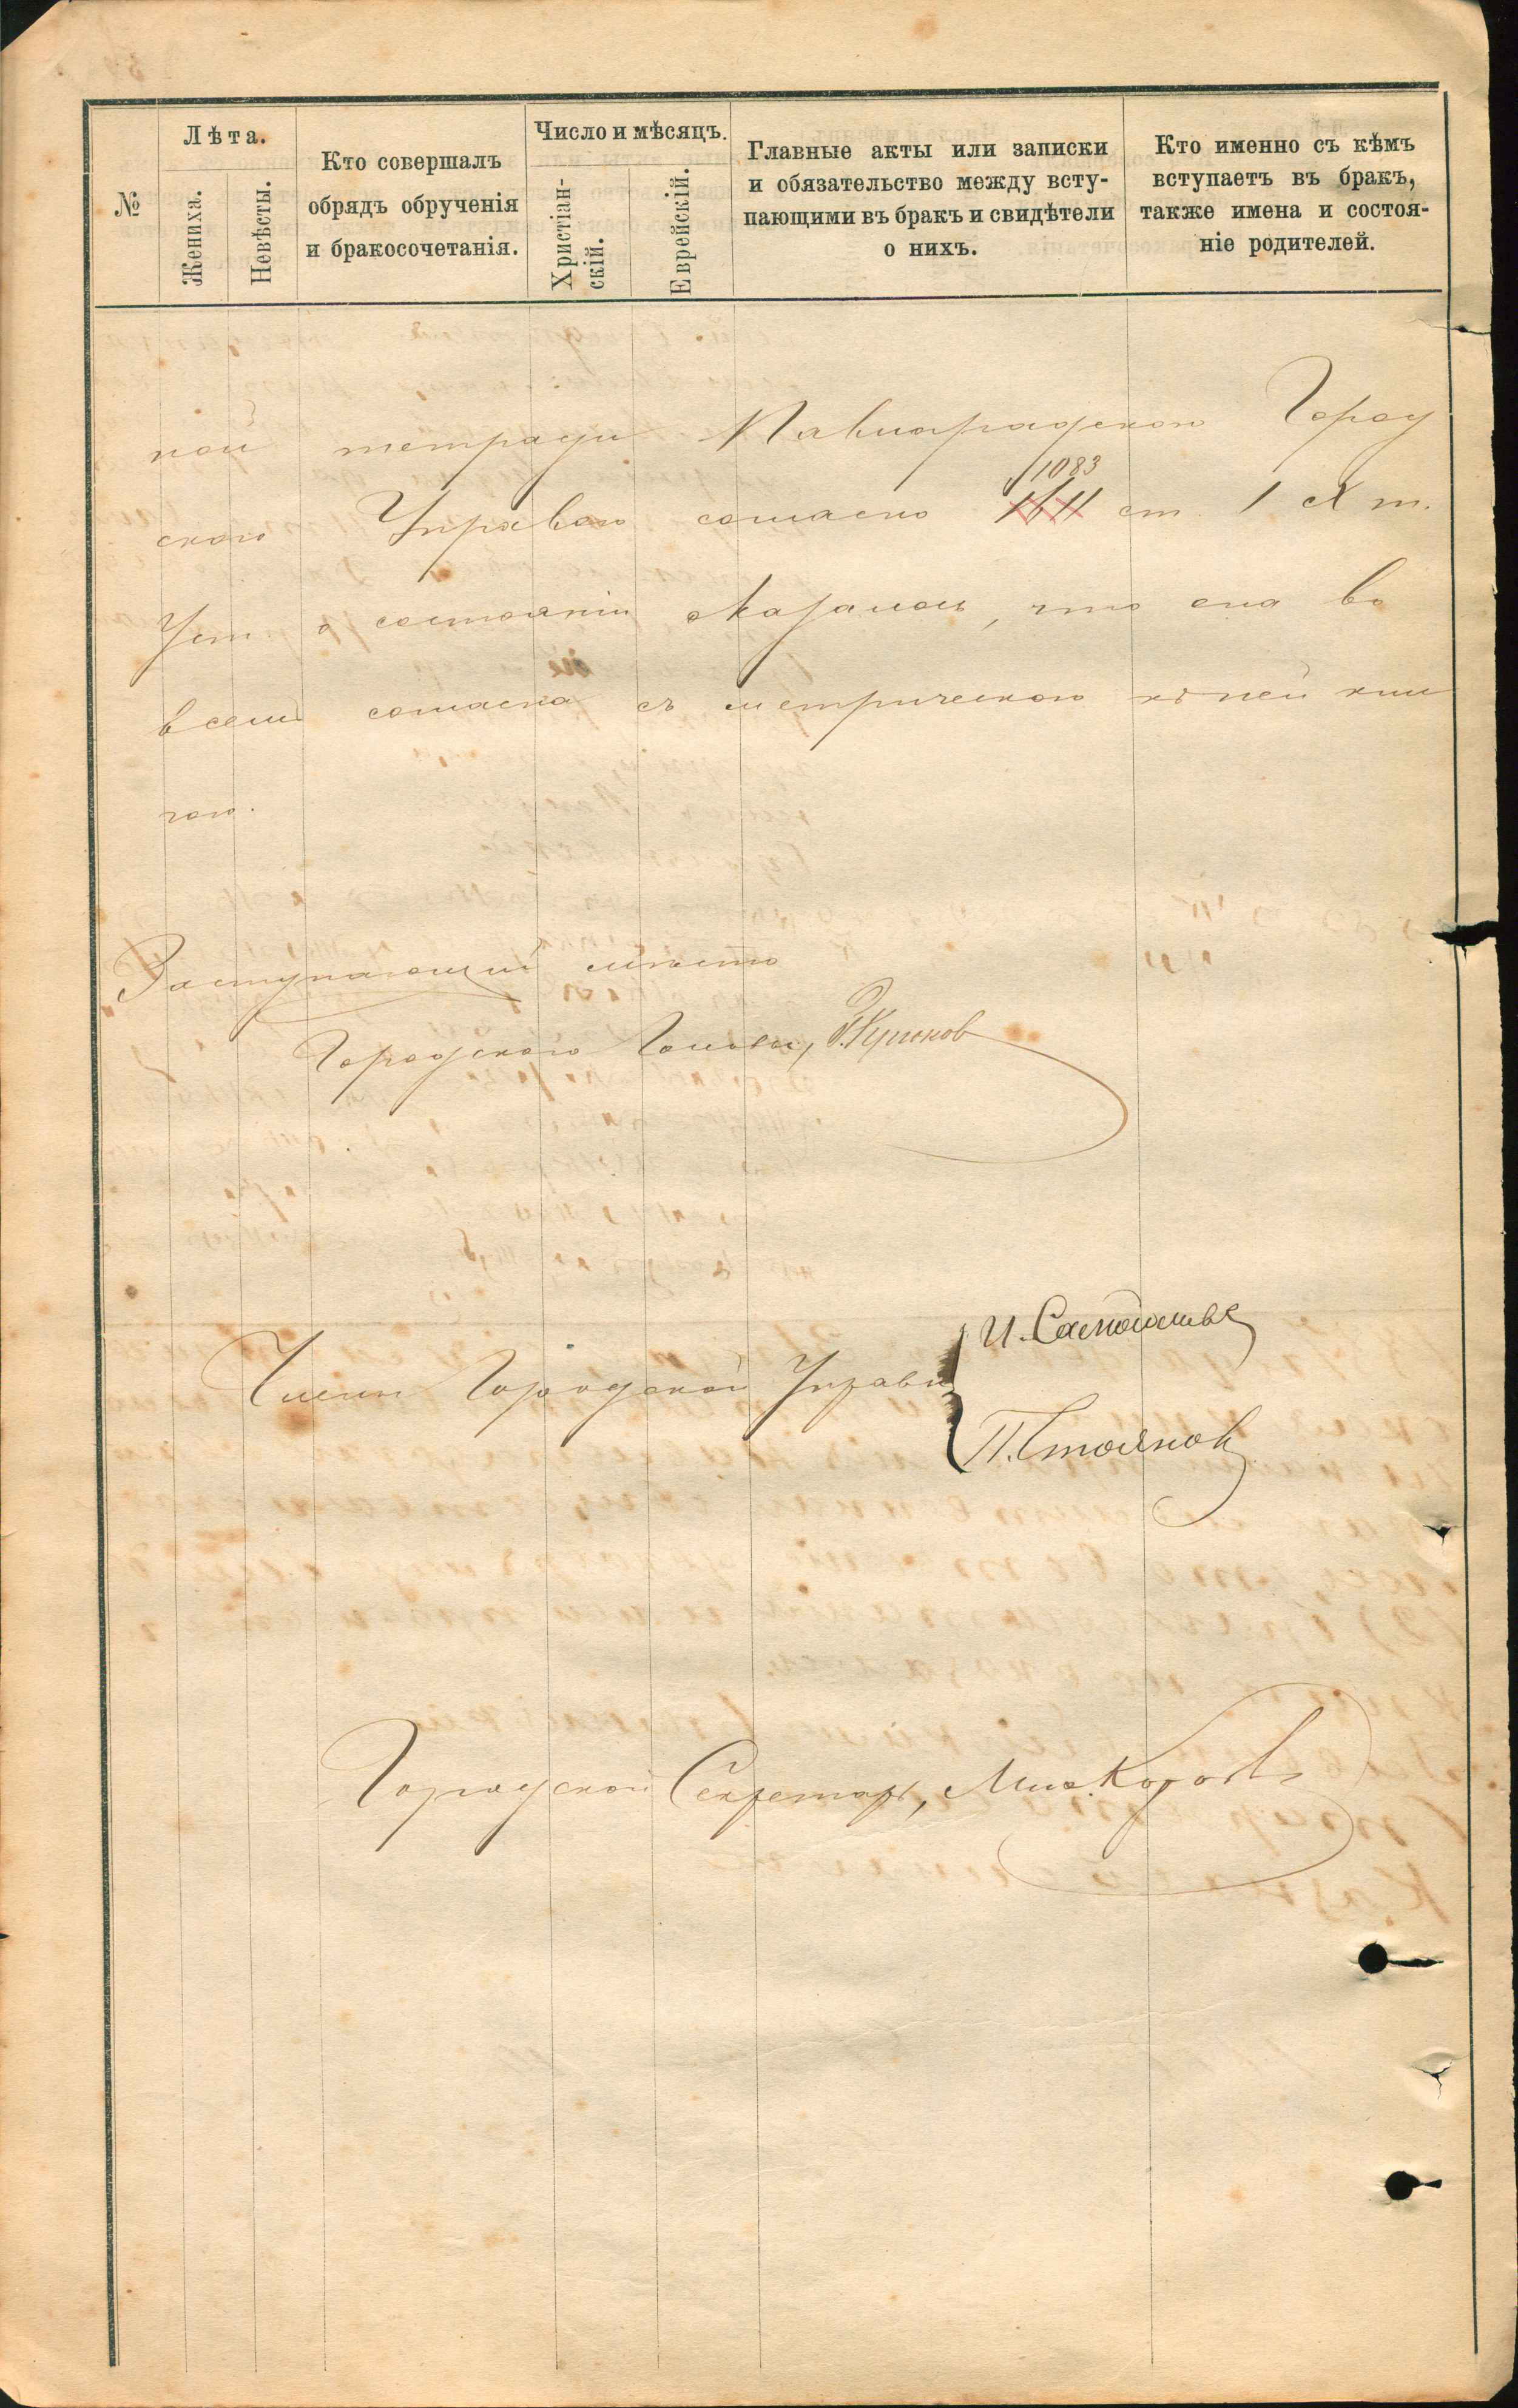 №
Лѣта.
Жениха.
Невѣсты.
Кто совершалъ
обрядъ обрученія
и бракосочетанія.
Число и мѣсяцъ.
Христіан-
скій.
Еврейскій.
Главные акты или записки
и обязательство между всту-
пающими въ бракъ и свидѣтели
о нихъ.
Кто именно съ кѣмъ
вступаетъ въ бракъ,
также имена и состоя-
ніе родителей.
ной тетради Павлоградскою Город
1083
скою Управою согласно ст. 1 IX т.
Уст. о состояніи оказалось, что она во
всемъ согласна съ метрическою къ ней кни
гою.
Заступающій мѣсто
Городского Головы,
Члены Городской Управы
И.
П. Стоянов
Городской Секретарь,